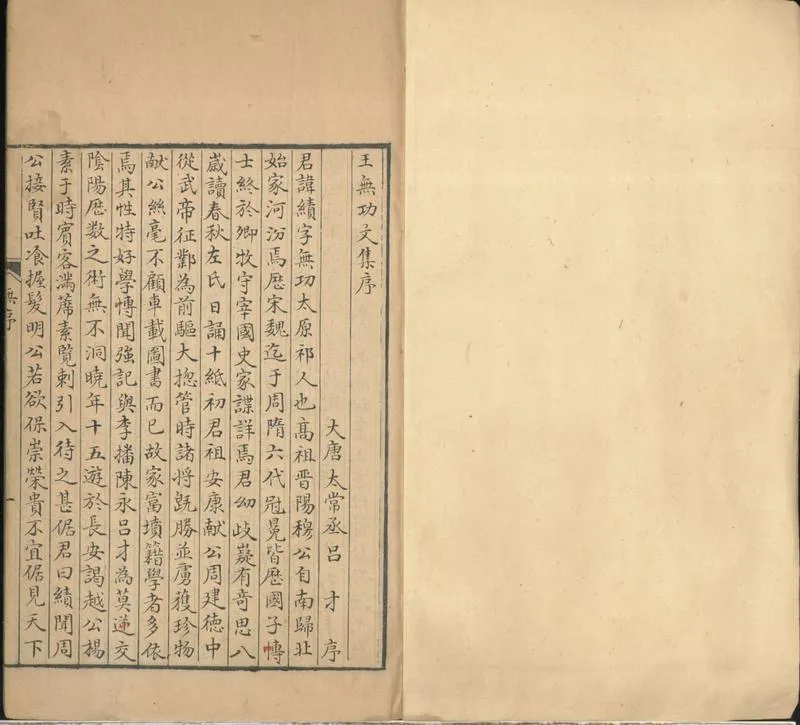 王無功文集序
大唐太常丞呂才序
君諱績字無功太原祁人也高祖晋陽穆公自南歸北
始家河汾焉歴宋魏迄于周隋六代冠冕皆歴國子博
士終於卿牧守宰國史家諜詳焉君幼歧嶷有奇思八
歳讀春秋左氏日誦十紙初君祖安康献公周建德中
從武帝征鄴為前驅大揔管時諸将既勝並虜獲珍物
献公絲毫不顧車載圖書而已故家富墳籍學者多依
焉其性特好學博聞強記與李播陳永呂才為莫逆交
陰陽歴数之術無不洞曉年十五遊於長安謁越公楊
素于時賓客滿蓆素覧刺引入待之甚倨君曰績聞周
公接賢吐飡握髮明公若欲保崇榮貴不宜倨見天下
無序
一